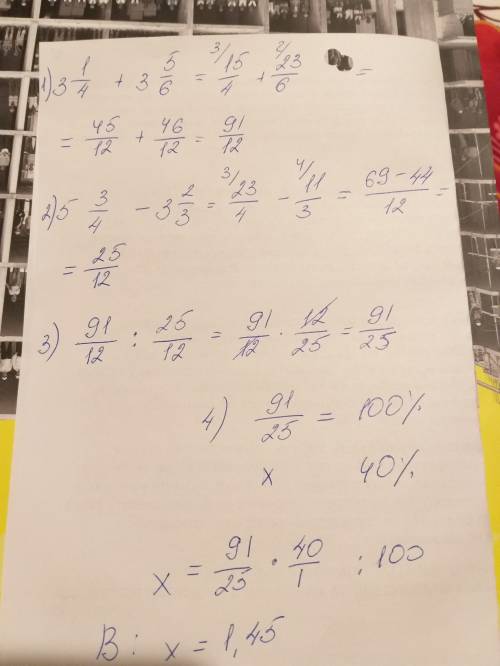 1) 3 1/4 + 3 5/6 = 3/ 15/4 + 2/ 23/6 =
= 45/12 + 46/12 = 91/12
2) 5 3/4 - 3 2/3 = 3/ 23/4 - 4/ 11/3 = (69-44)/12 =
= 25/12
3) 91/12 : 25/12 = 91/12 · 12/25 = 91/25
4) 91/25 = 100%
x 40%
x = 91/25 · 40/1 : 100
В: x = 1,45